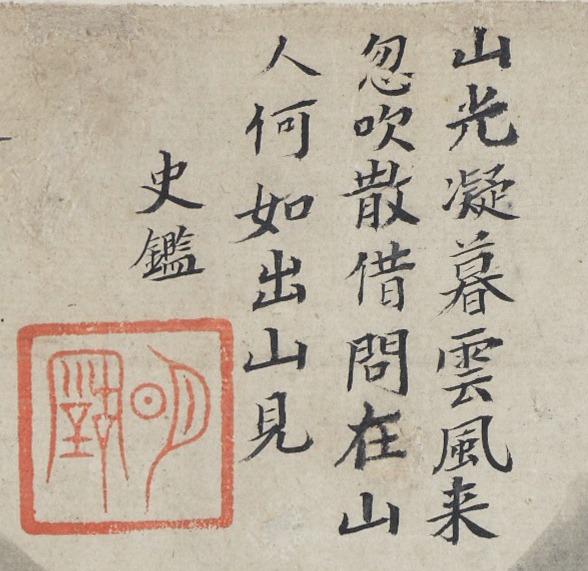 山光凝暮雲風来
忽吹散借問在山
人何如出山見
史鑑